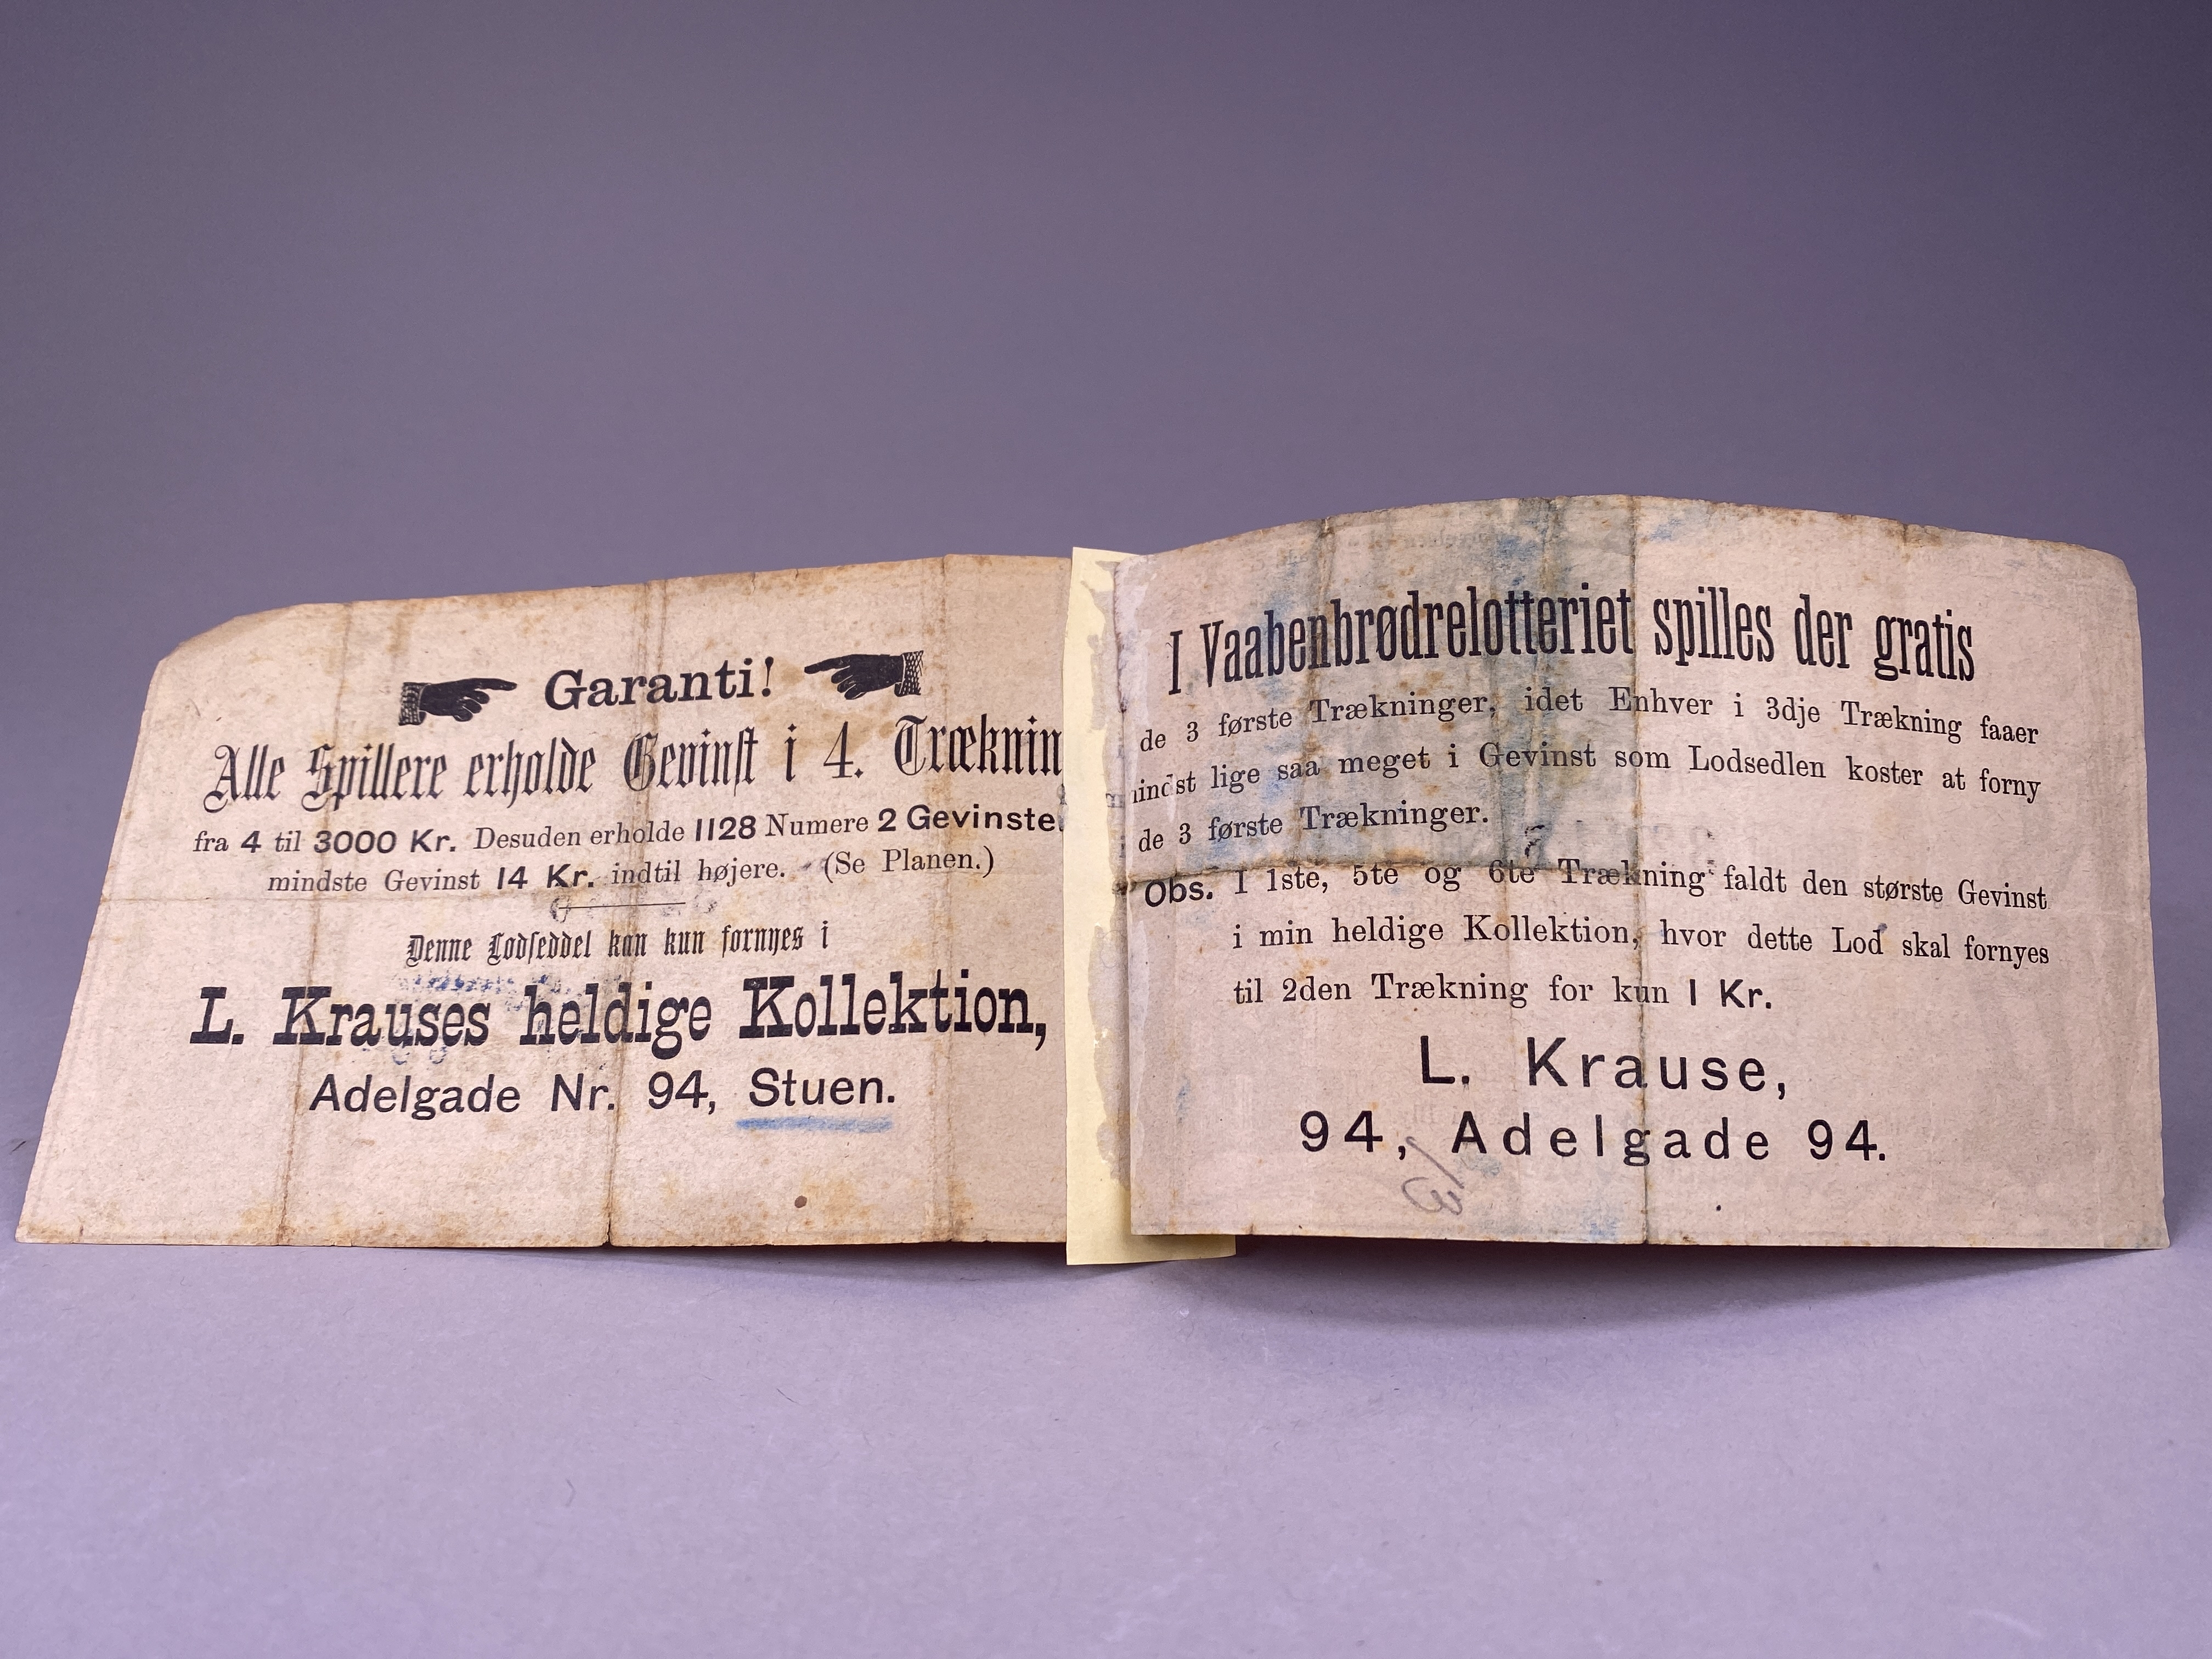 Garanti!
Alle Spillere erholde Gevinst i 4. Træknin
fra 4 til 3000 Kr. Desuden erholde 1128 Numere 2 Gevinste
mindste Gevinst 14 Kr. indtil højere. (Se Planen.)
Denne Lodseddel kan kun fornyes i
L. Krauses heldige Kollektion,
Adelgade Nr. 94, Stuen.
I Vaabenbrødrelotteriet spilles der gratis
de 3 første Trækninger, idet Enhver i 3dje Trækning faaer
indst lige saa meget i Gevinst som Lodsedlen koster at forny
de 3 første Trækninger.
Obs. I 1ste, 5te og 6te Trækning faldt den største Gevinst
i min heldige Kollektion, hvor dette Lod skal fornyes
til 2den Trækning for kun 1 Kr.
L. Krause,
94, Adelgade 94.